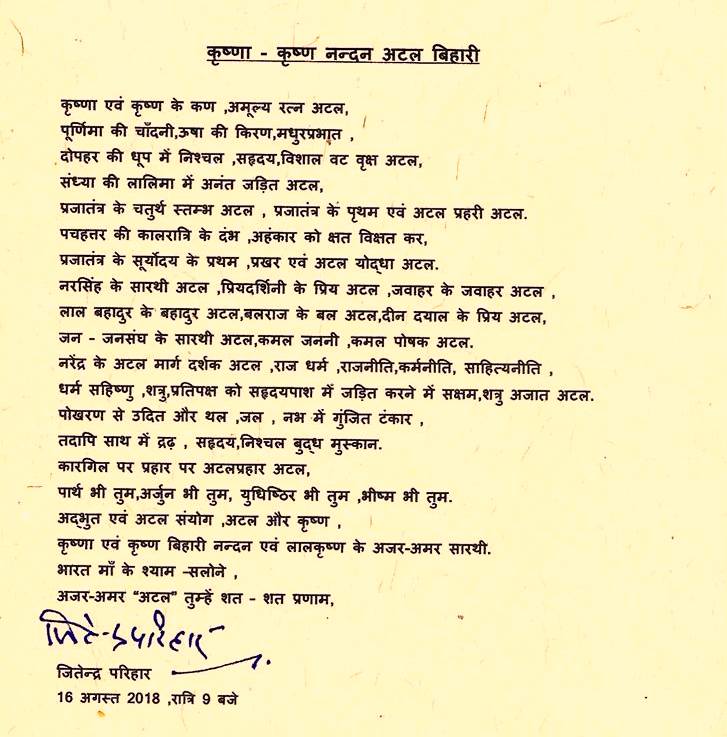 कृष्णा - कृष्ण नन्दन अटल बिहारी
कृष्णा एवं कृष्ण के कण ,अमूल्य रत्न अटल,
पूर्णिमा की चाँदनी,ऊषा की किरण,मधुरप्रभात ,
दोपहर की धूप में निश्चल ,सहृदय,विशाल वट वृक्ष अटल,
संध्या की लालिमा में अनंत जड़ित अटल,
प्रजातंत्र के चतुर्थ स्तम्भ अटल , प्रजातंत्र के पृथम एवं अटल प्रहरी अटल.
पचहत्तर की कालरात्रि के दंभ ,अहंकार को क्षत विक्षत कर,
प्रजातंत्र के सूर्योदय के प्रथम ,प्रखर एवं अटल योद्धा अटल.
नरसिंह के सारथी अटल ,प्रियदर्शिनी के प्रिय अटल ,जवाहर के जवाहर अटल ,
लाल बहादुर के बहादुर अटल,बलराज के बल अटल,दीन दयाल के प्रिय अटल,
जन - जनसंघ के सारथी अटल,कमल जननी ,कमल पोषक अटल.
नरेंद्र के अटल मार्ग दर्शक अटल ,राज धर्म ,राजनीति,कर्मनीति, साहित्यनीति ,
धर्म सहिष्णु ,शत्रु,प्रतिपक्ष को सहृदयपाश में जड़ित करने में सक्षम,शत्रु अजात अटल.
पोखरण से उदित और थल ,जल , नभ में गुंजित टंकार ,
तदापि साथ में द्रढ़ , सहृदय,निश्चल बुद्ध मुस्कान.
कारगिल पर प्रहार पर अटलप्रहार अटल,
पार्थ भी तुम,अर्जुन भी तुम, युधिष्ठिर भी तुम ,भीष्म भी तुम.
अद्भुत एवं अटल संयोग ,अटल और कृष्ण ,
कृष्णा एवं कृष्ण बिहारी नन्दन एवं लालकृष्ण के अजर-अमर सारथी.
भारत माँ के श्याम –सलोने ,
अजर-अमर “अटल” तुम्हें शत - शत प्रणाम,
जितेन्द्र परिहार
16 अगस्त 2018 ,रात्रि 9 बजे